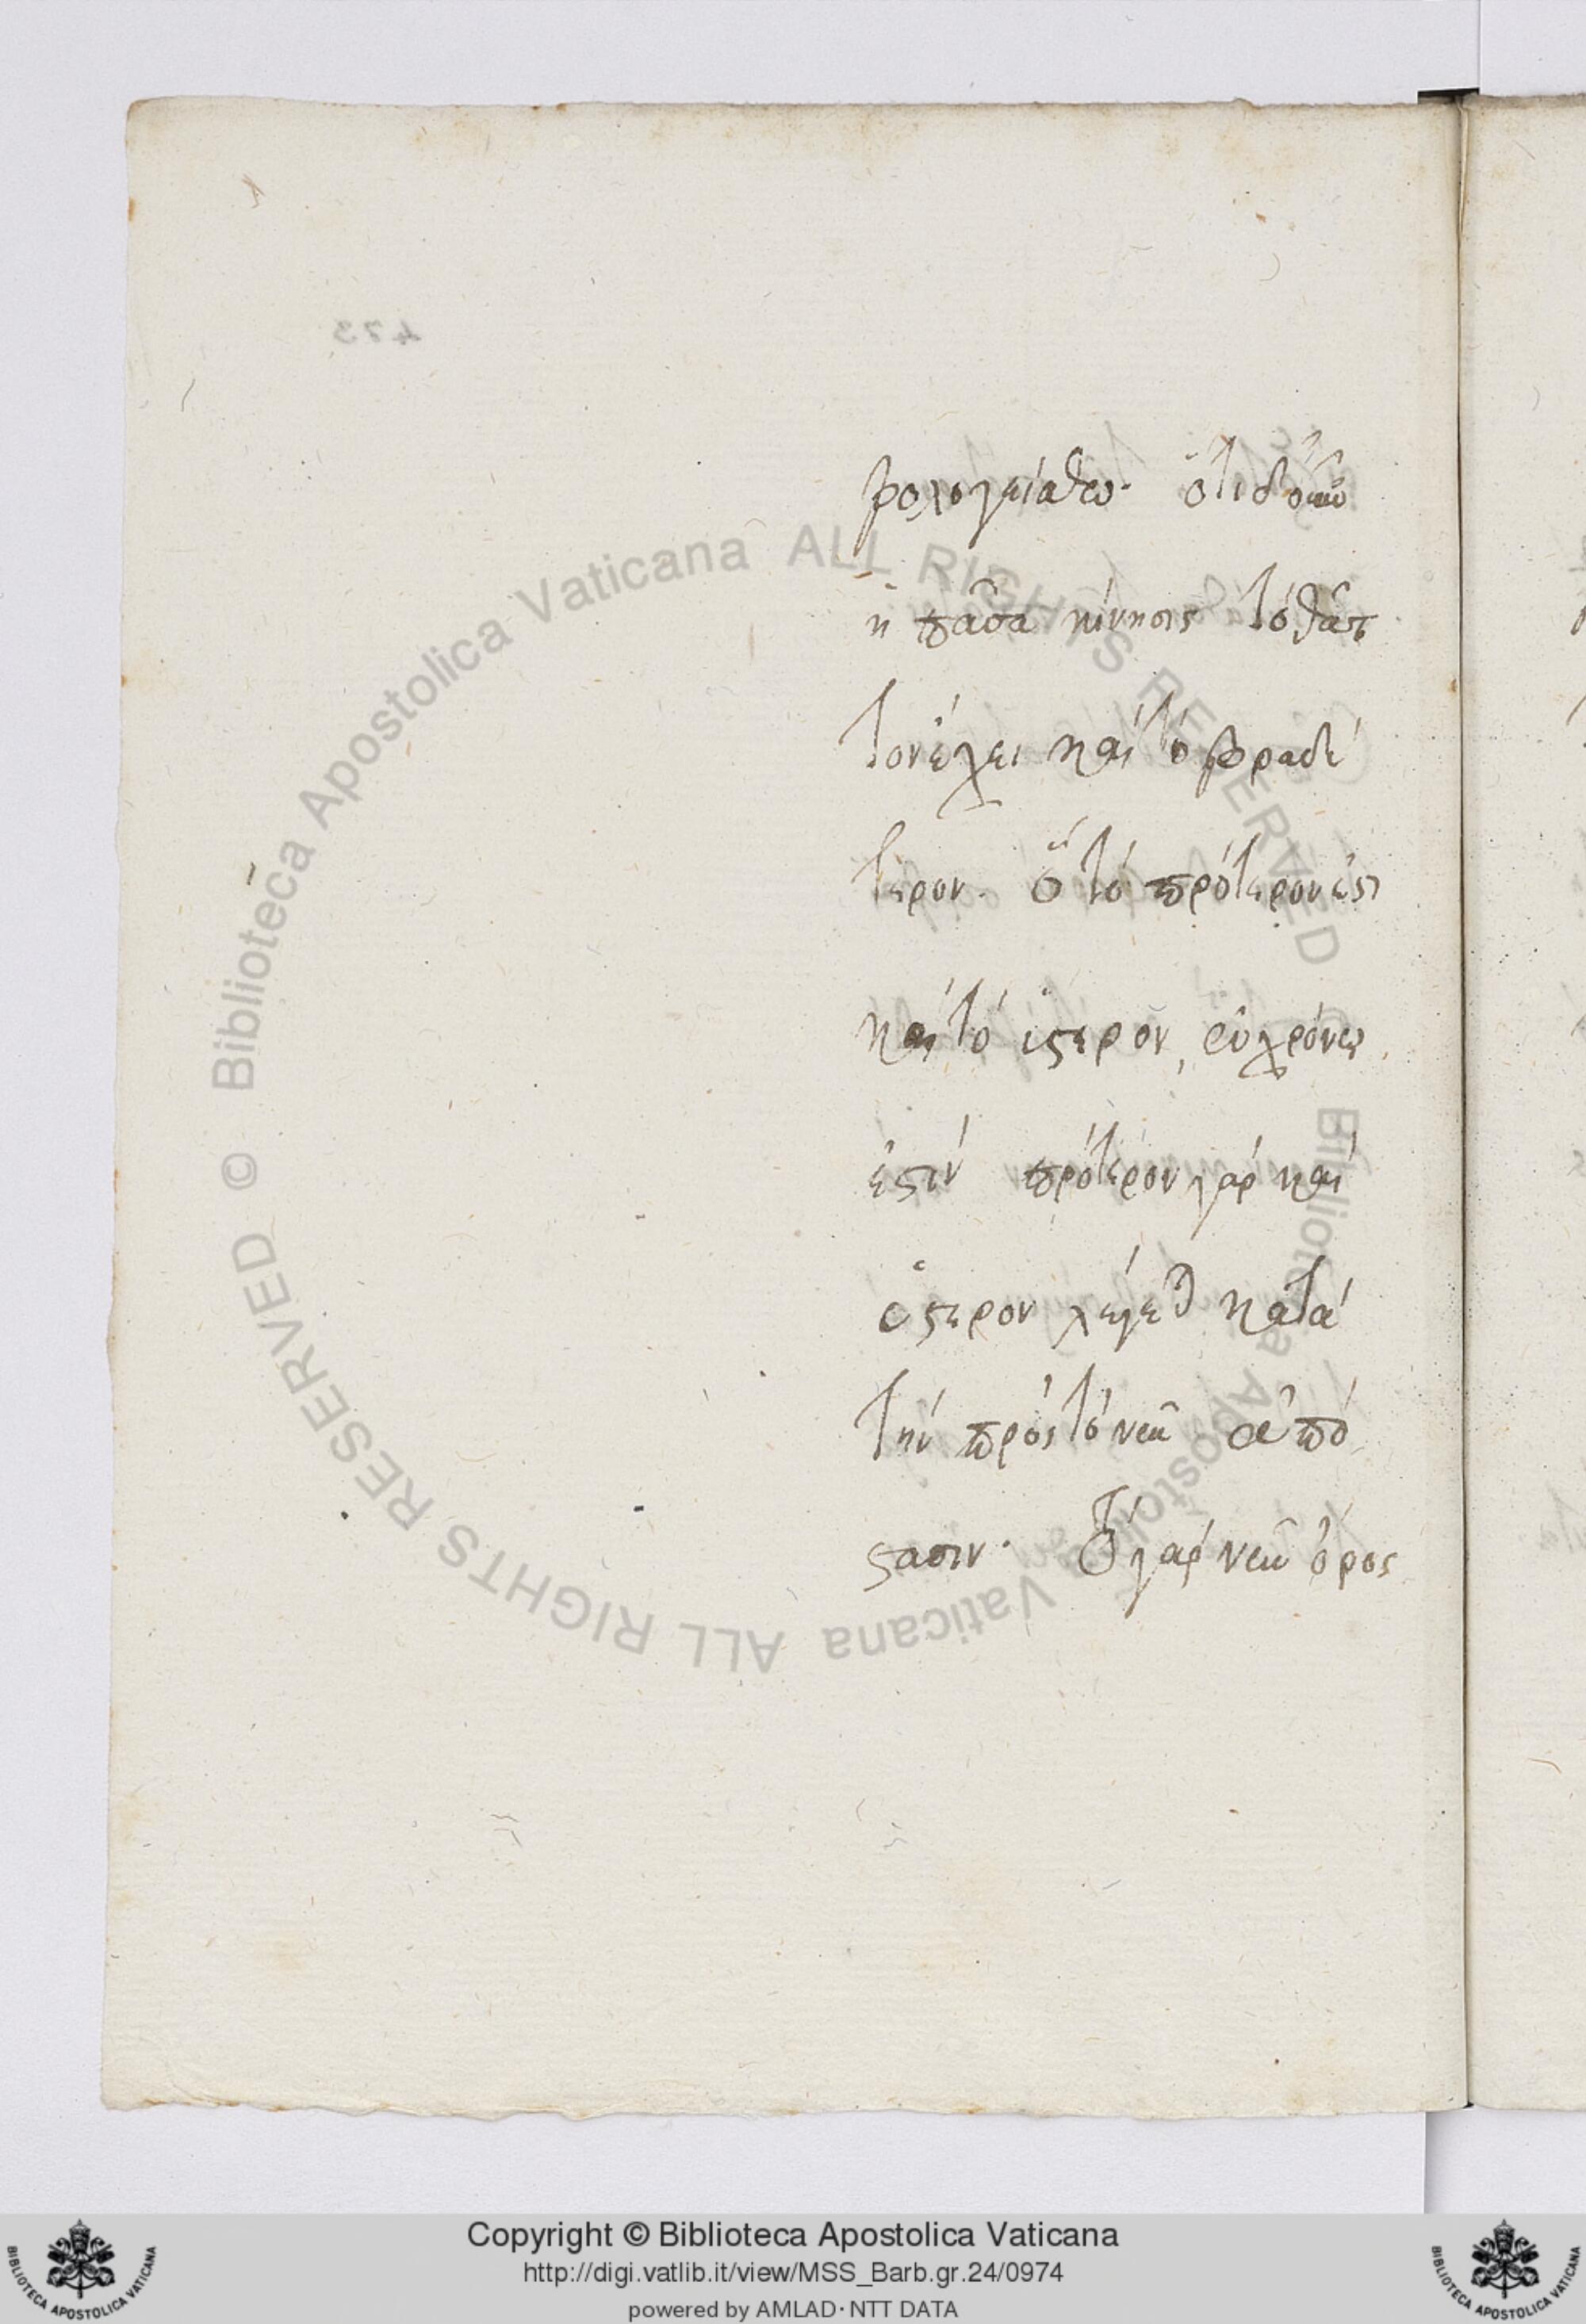 βρολογείσθω. ὅτι δοκεῖ
ἡ πᾶσα κίνησις τὸ θᾶτ
τον ἔχει καὶ τὸ βραδύ
τερον. τὸ πρότερον ἐστ
καὶ τὸ ὕστερον, ἐν χρόνω
ἐστίν πρότερον γὰρ καὶ
ὕστερον λέγεται κατὰ
τὴν πρὸς τὸ νῦν ἀπό
στασιν. τὸ γὰρ νῦν ὅρος
473
Biblioteca Apostolica Vaticana ALL RIGHTS RESERVED ©
Biblioteca Apostolica Vaticana ALL RIGHTS RESERVED ©
Copyright © Biblioteca Apostolica Vaticana
http://digi.vatlib.it/view/MSS_Barb.gr.24/0974
powered by AMLAD · NTT DATA
BIBLIOTECA APOSTOLICA VATICANA
BIBLIOTECA APOSTOLICA VATICANA